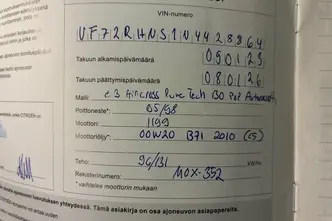 VIN-numero
VF72RHNS1N4428864
Takuun alkamispäivämäärä
090123
Takuun päättymispäivämäärä
080126
Malli: C3 Aircross PureTech 130 PoP Automaatti
Polttoneste* 95/98
Moottori: 1199
Moottoriöljy* 00W20 B71 2010 (C5)
Teho: 96/131 kW/hv
Rekisterinumero: MOX-352
* vaihtelee moottorin mukaan
yksen yhteydessä. Tämä asiakirja on osa ajoneuvon asiapapereita.